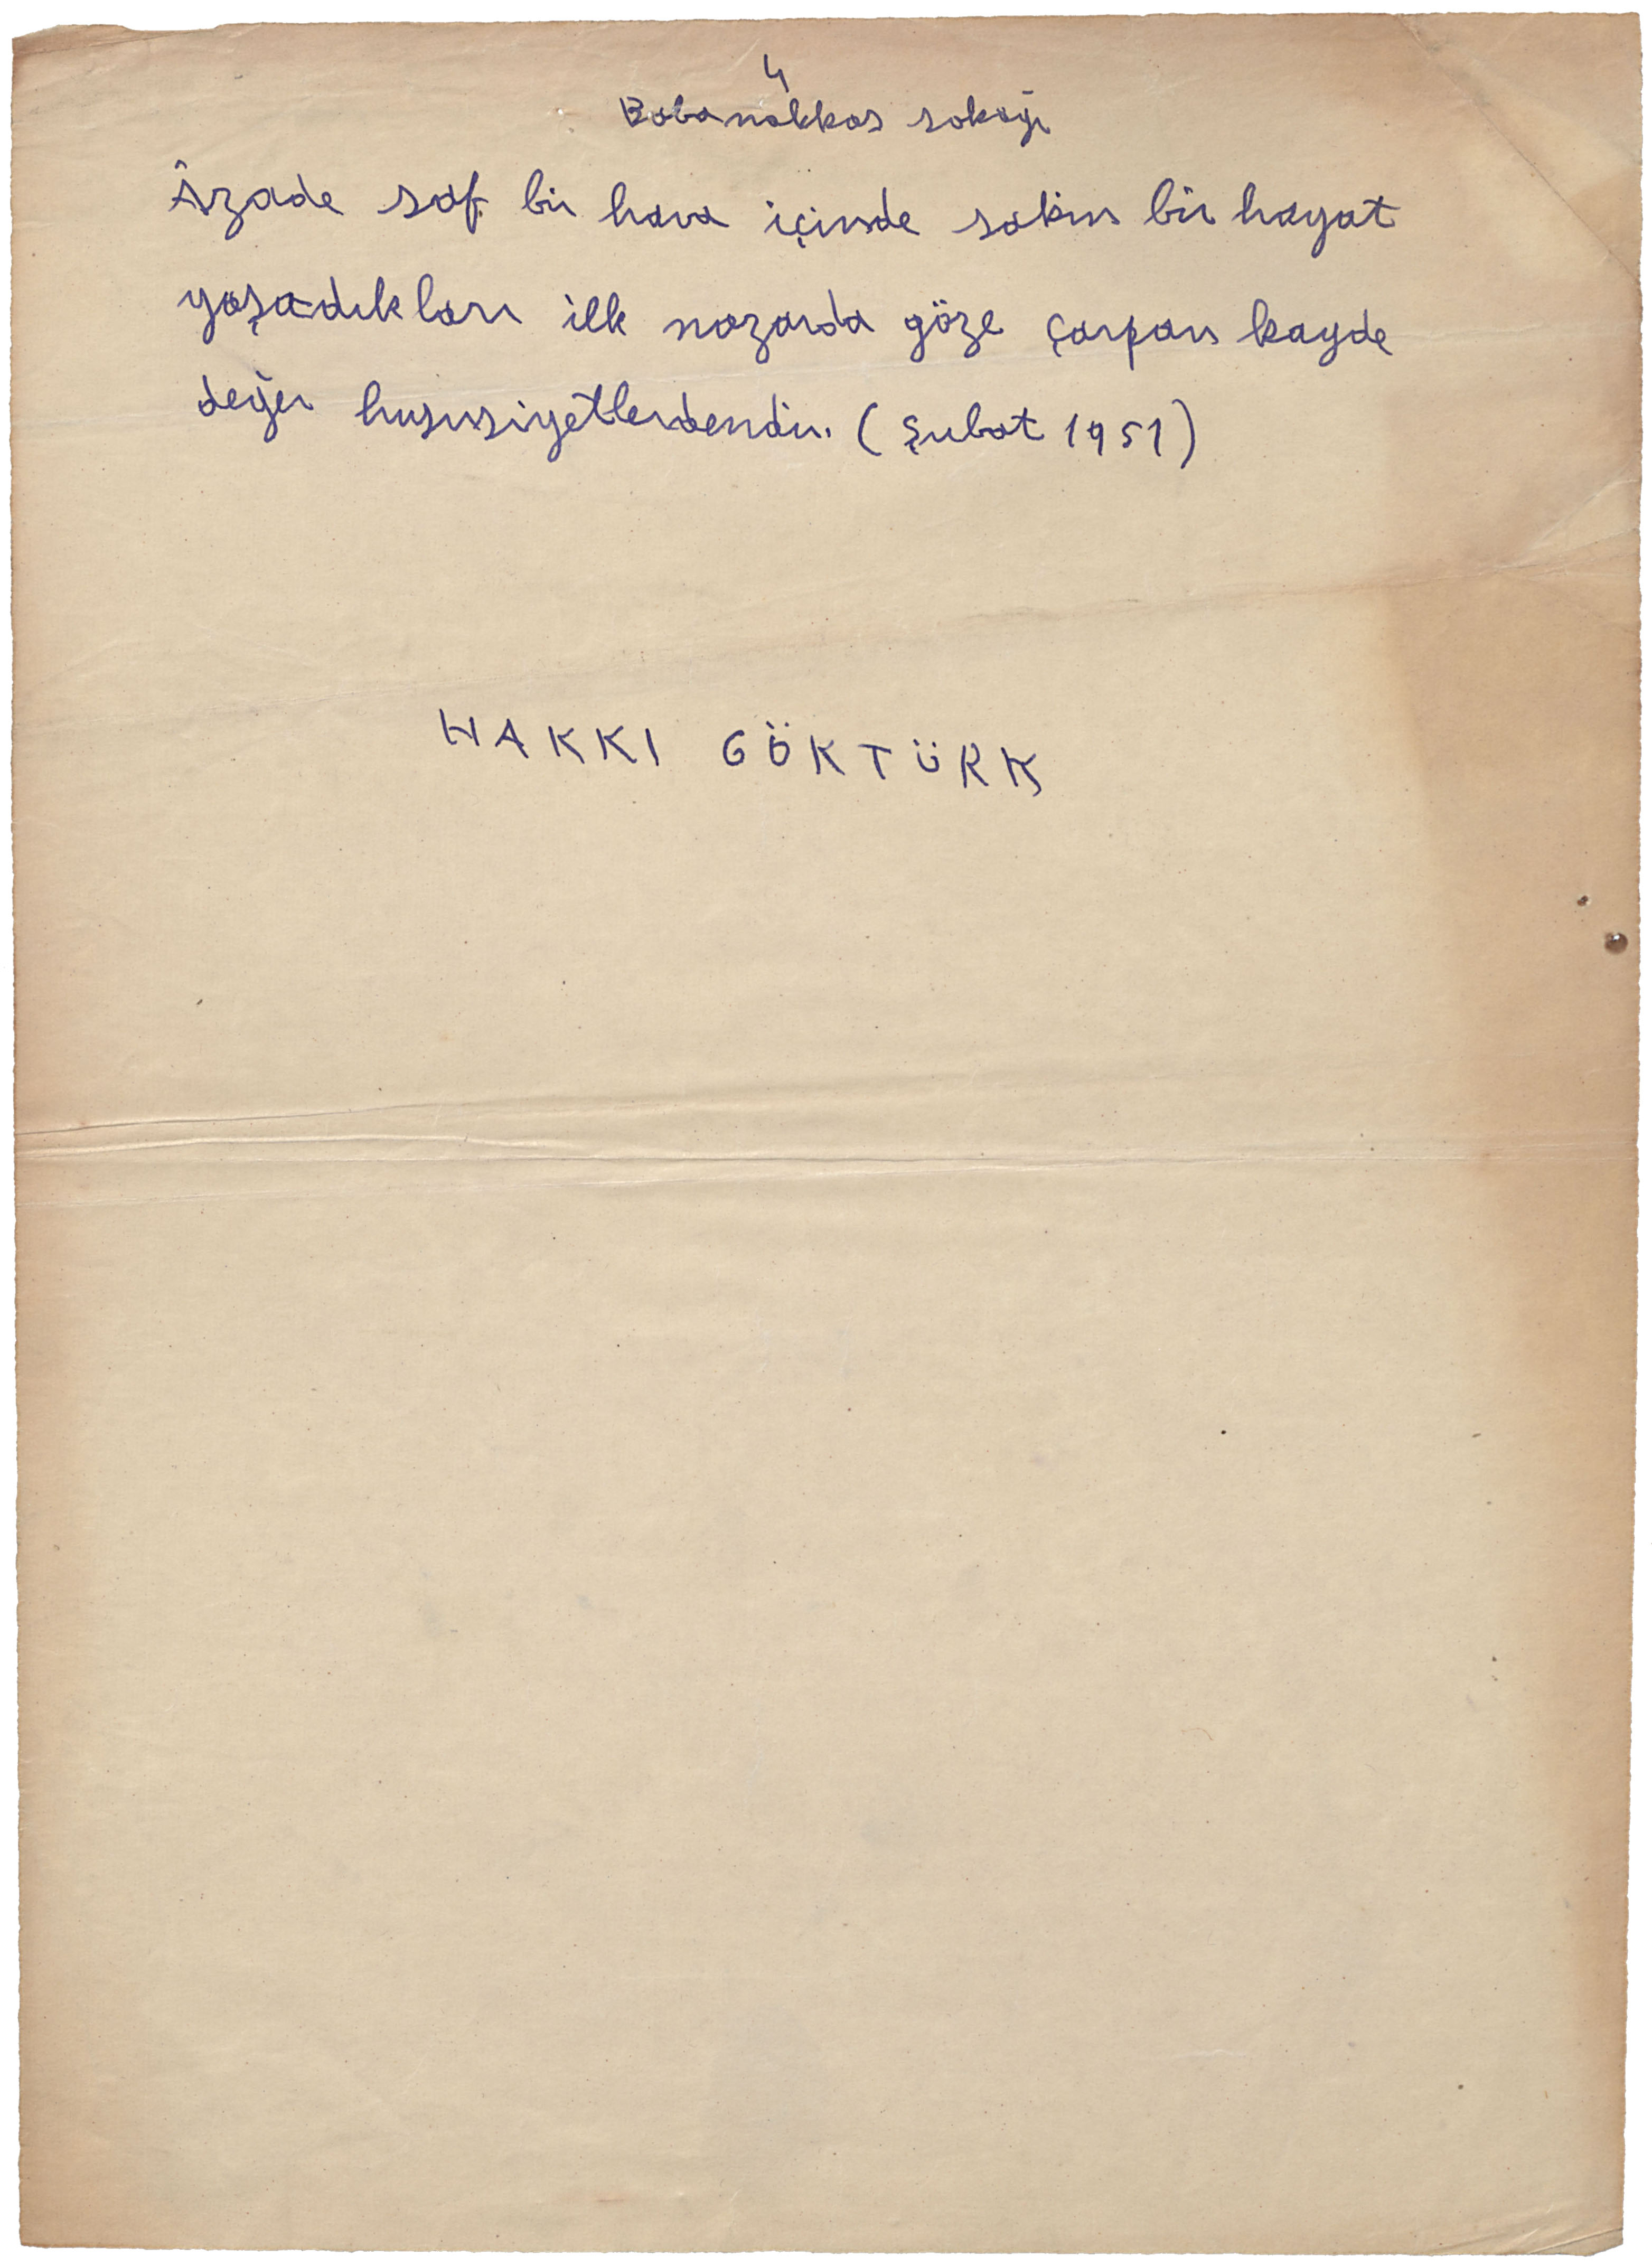 4
Babanakkas sokağı
Âzade saf bir hava içinde sakin bir hayat
yaşadıkları ilk nazarda göze çarpan kayde
değer hususiyetlerdendir. (Şubat 1951)
HAKKI GÖKTÜRK